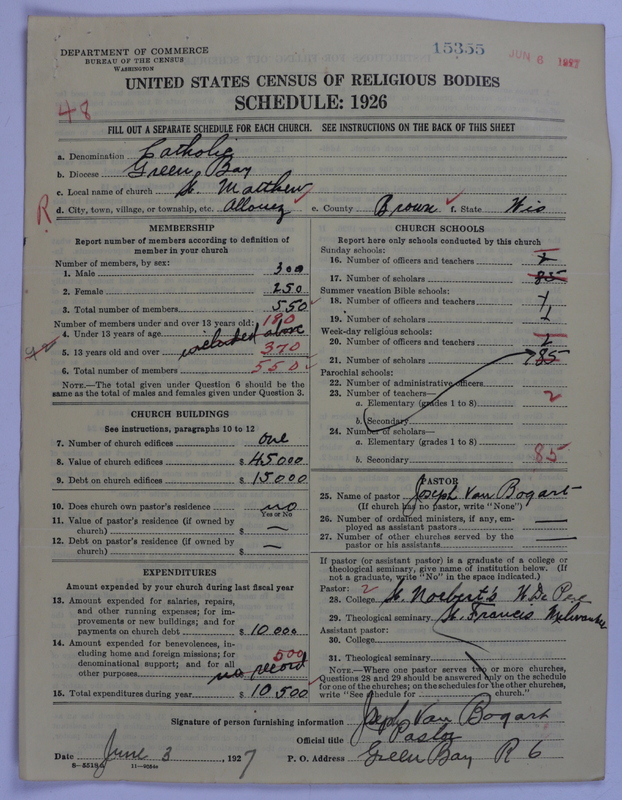 DEPARTMENT OF COMMERCE
BUREAU OF THE CENSUS
WASHINGTON
15355
JUN 6 1927
UNITED STATES CENSUS OF RELIGIOUS BODIES
SCHEDULE: 1926
48
FILL OUT A SEPARATE SCHEDULE FOR EACH CHURCH. SEE INSTRUCTIONS ON THE BACK OF THIS SHEET
a. Denomination Catholic
b. Diocese Green Bay
c. Local name of church St. Matthew
R
d. City, town, village, or township, etc. Allouez e. County Brown f. State Wis
MEMBERSHIP
Report number of members according to definition of
member in your church
Number of members, by sex:
1. Male 300
2. Female 250
3. Total number of members 550
Number of members under and over 13 years old:
4. Under 13 years of age 180
included above
5. 13 years old and over 370
6. Total number of members 550
NOTE.—The total given under Question 6 should be
same as the total of males and females given under Question 3.
CHURCH BUILDINGS
See instructions, paragraphs 10 to 12
7. Number of church edifices one
8. Value of church edifices $ 45000
9. Debt on church edifices $ 15000
10. Does church own pastor's residence no
Yes or No
11. Value of pastor's residence (if owned by
church) $ —
12. Debt on pastor's residence (if owned by
church) $ —
EXPENDITURES
Amount expended by your church during last fiscal year
13. Amount expended for salaries, repairs,
and other running expenses; for im-
provements or new buildings; and for
payments on church debt $ 10 000
14. Amount expended for benevolences, in-
cluding home and foreign missions; for
denominational support; and for all
other purposes 500
no record
15. Total expenditures during year $ 10 500
CHURCH SCHOOLS
Report here only schools conducted by this church
Sunday schools:
16. Number of officers and teachers
17. Number of scholars 85
Summer vacation Bible schools:
18. Number of officers and teachers
19. Number of scholars
Week-day religious schools:
20. Number of officers and teachers
21. Number of scholars 85
Parochial schools:
22. Number of administrative officers
23. Number of teachers—
a. Elementary (grades 1 to 8) 2
b. Secondary
24. Number of scholars—
a. Elementary (grades 1 to 8)
b. Secondary 85
PASTOR
25. Name of pastor Joseph Van Bogart
(If church has no pastor, write "None")
26. Number of ordained ministers, if any, em-
ployed as assistant pastors —
27. Number of other churches served by the
pastor or his assistants —
If pastor (or assistant pastor) is a graduate of a college or
theological seminary, give name of institution below. (If
not a graduate, write "No" in the space indicated.)
Pastor: 2
28. College St. Norberts W De Pere
29. Theological seminary St. Francis Milwaukee
Assistant pastor:
30. College
31. Theological seminary
NOTE.—Where one pastor serves two or more churches,
Questions 28 and 29 should be answered only on the schedule
for one of the churches; on the schedules for the other churches,
write "See schedule for church."
Signature of person furnishing information Joseph Van Bogart
Official title Pastor
Date June 3, 1927 P. O. Address Green Bay R 6
8—5518a 11—9054